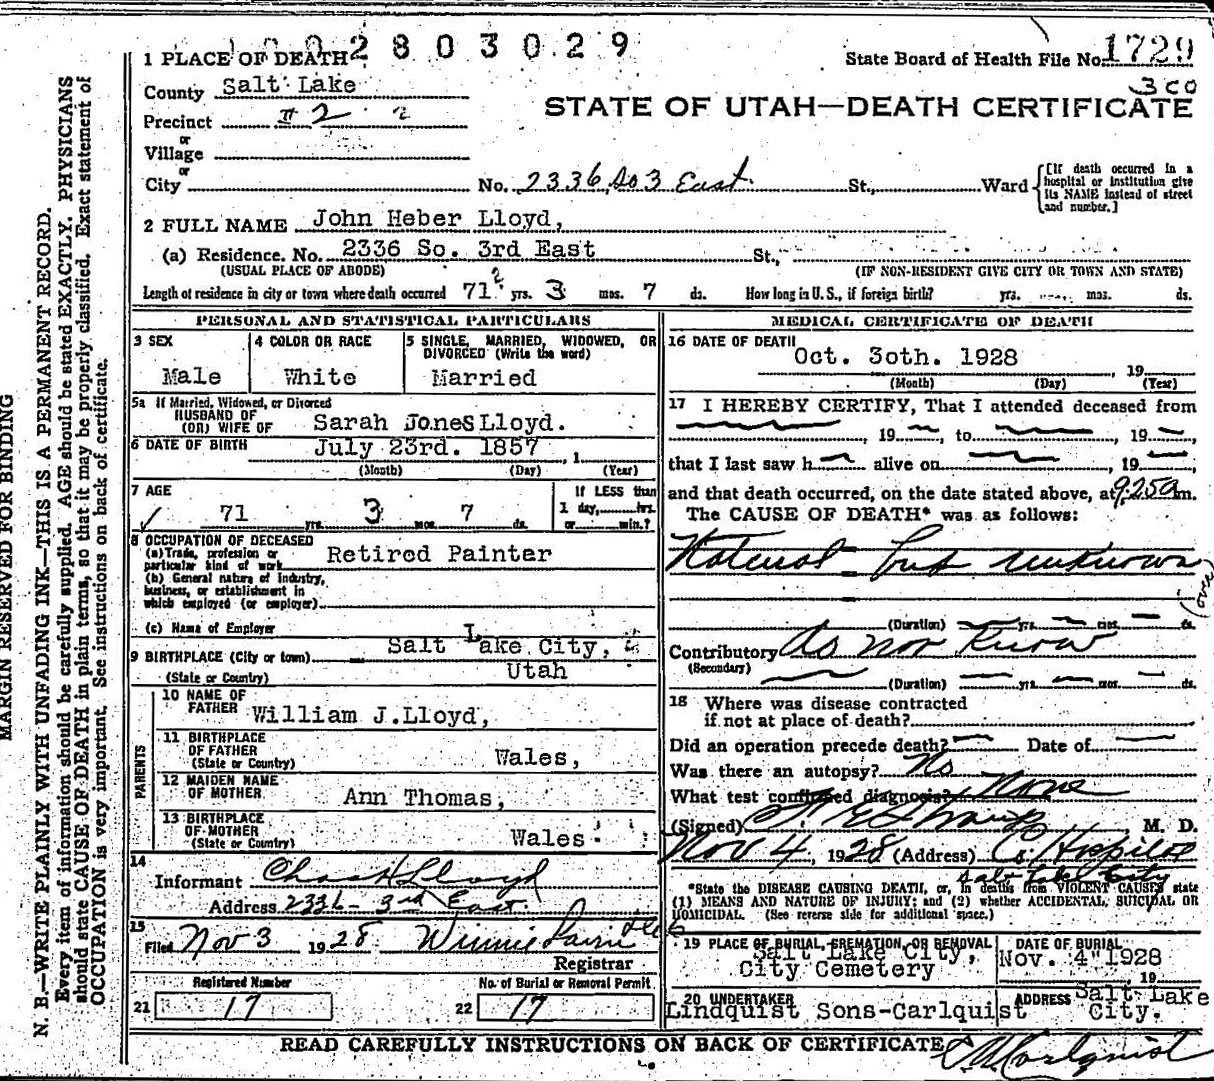 1 PLACE OF DEATH 1002803029
State Board of Health File No. 1729
300
County Salt Lake
STATE OF UTAH—DEATH CERTIFICATE
Precinct # 2 2
or
Village
or
City No. 2336 So 3 East St., Ward
[If death occurred in a
hospital or institution give
its NAME instead of street
and number.]
2 FULL NAME John Heber Lloyd,
(a) Residence. No. 2336 So. 3rd East St.,
(USUAL PLACE OF ABODE) (IF NON-RESIDENT GIVE CITY OR TOWN AND STATE)
Length of residence in city or town where death occurred 71 yrs. 3 mos. 7 ds. How long in U. S., if foreign birth? yrs. mos. ds.
PERSONAL AND STATISTICAL PARTICULARS
3 SEX
Male
4 COLOR OR RACE
White
5 SINGLE, MARRIED, WIDOWED, OR
DIVORCED (Write the word)
Married
5a If Married, Widowed, or Divorced
HUSBAND OF
(OR) WIFE OF Sarah Jones Lloyd.
6 DATE OF BIRTH July 23rd. 1857, 1
(Month) (Day) (Year)
7 AGE
71 yrs. 3 mos. 7 ds.
If LESS than
1 day, hrs.
or min.?
8 OCCUPATION OF DECEASED
(a) Trade, profession or
particular kind of work Retired Painter
(b) General nature of industry,
business, or establishment in
which employed (or employer)
(c) Name of Employer
9 BIRTHPLACE (City or town) Salt Lake City,
(State or Country) Utah
PARENTS
10 NAME OF
FATHER William J.Lloyd,
11 BIRTHPLACE
OF FATHER
(State or Country) Wales,
12 MAIDEN NAME
OF MOTHER Ann Thomas,
13 BIRTHPLACE
OF MOTHER
(State or Country) Wales.
14
Informant Chas H Lloyd
Address 2336- 3rd East.
15
Filed Nov 3 1928 Winnie
Registrar
Registered Number
21 17
No. of Burial or Removal Permit
22 17
MEDICAL CERTIFICATE OF DEATH
16 DATE OF DEATH
Oct. 3oth. 1928 19
(Month) (Day) (Year)
17 I HEREBY CERTIFY, That I attended deceased from
, 19 , to , 19 ,
that I last saw h alive on , 19 ,
and that death occurred, on the date stated above, at 9:25a m.
The CAUSE OF DEATH* was as follows:
Natural - but unknown
(over)
(Duration) yrs. mos. ds.
Contributory do not know
(Secondary)
(Duration) yrs. mos. ds.
18 Where was disease contracted
if not at place of death?
Did an operation precede death? Date of
Was there an autopsy? No
What test confirmed diagnosis? None
(Signed) M. D.
Nov 4, 1928 (Address) Co. Hospital
Salt Lake City
*State the DISEASE CAUSING DEATH, or, in deaths from VIOLENT CAUSES state
(1) MEANS AND NATURE OF INJURY; and (2) whether ACCIDENTAL, SUICIDAL OR
HOMICIDAL. (See reverse side for additional space.)
19 PLACE OF BURIAL, CREMATION, OR REMOVAL
Salt Lake City,
City Cemetery
DATE OF BURIAL
Nov. 4" 1928
19
20 UNDERTAKER
Lindquist Sons-Carlquist
ADDRESS Salt Lake
City.
READ CAREFULLY INSTRUCTIONS ON BACK OF CERTIFICATE
MARGIN RESERVED FOR BINDING
N. B.—WRITE PLAINLY WITH UNFADING INK—THIS IS A PERMANENT RECORD.
Every item of information should be carefully supplied. AGE should be stated EXACTLY. PHYSICIANS
should state CAUSE OF DEATH in plain terms, so that it may be properly classified. Exact statement of
OCCUPATION is very important. See instructions on back of certificate.